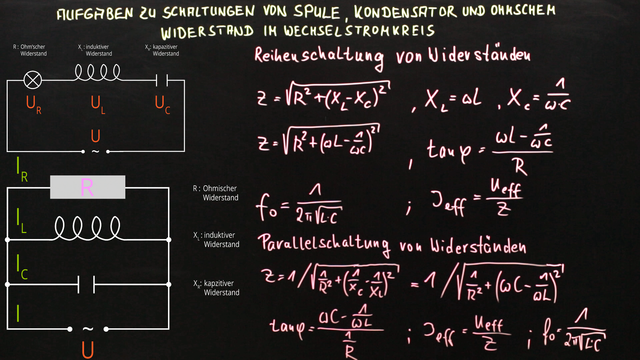 AUFGABEN ZU SCHALTUNGEN VON SPULE, KONDENSATOR UND OHMSCHEM
WIDERSTAND IM WECHSELSTROMKREIS
R : Ohm'scher Widerstand
X_L : induktiver Widerstand
X_C : kapazitiver Widerstand
U_R U_L U_C
U
~
Reihenschaltung von Widerständen
Z = √(R² + (X_L - X_C)²) , X_L = ωL , X_C = 1/(ωC)
Z = √(R² + (ωL - 1/(ωC))²) , tan φ = (ωL - 1/(ωC))/R
f₀ = 1/(2π√(L·C)) ; I_eff = U_eff/Z
I_R
R
I_L
I_C
I
~
U
R : Ohmischer
Widerstand
X_L : induktiver
Widerstand
: kapazitiver
Widerstand
Parallelschaltung von Widerständen
Z = 1/√(1/R² + (1/X_C - 1/X_L)²) = 1/√(1/R² + (ωC - 1/(ωL))²)
tan φ = (ωC - 1/(ωL))/(1/R) ; I_eff = U_eff/Z ; f₀ = 1/(2π√(L·C))